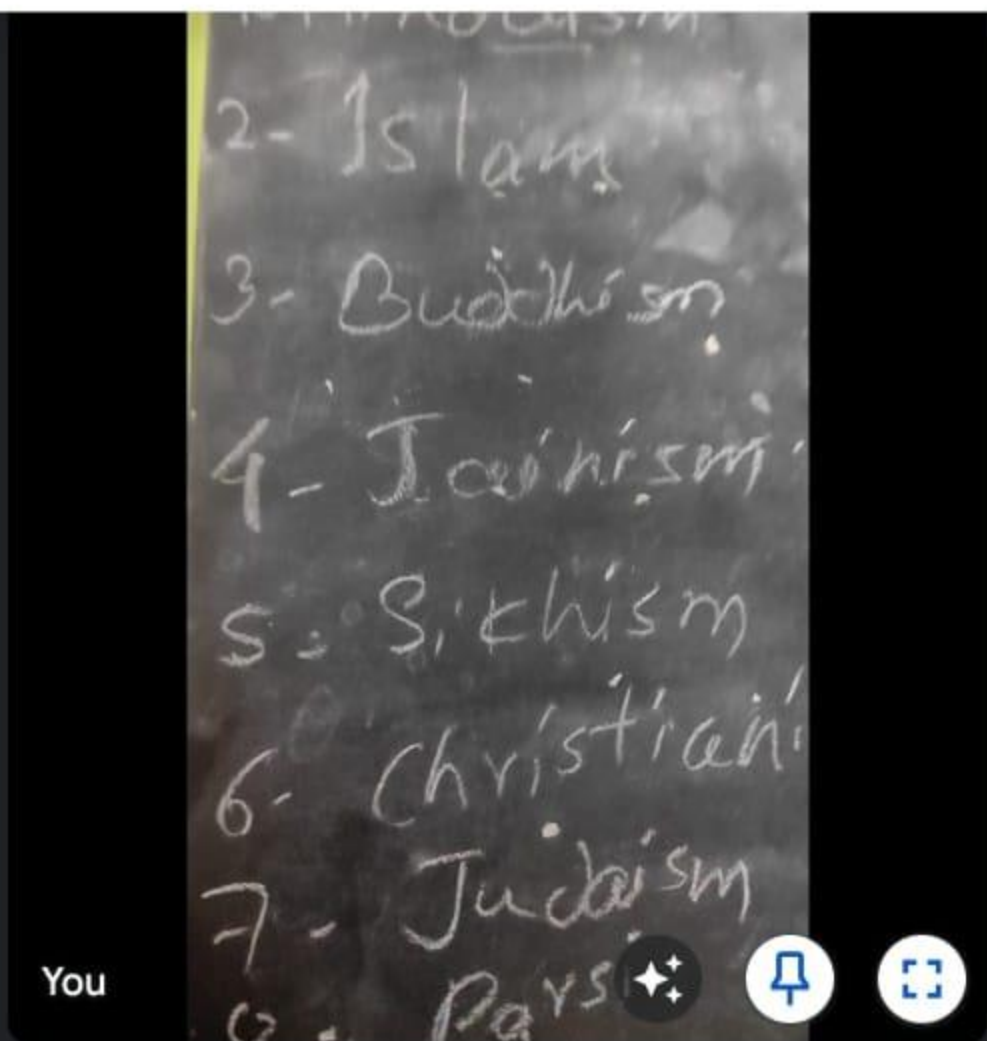 2- Islam
3- Buddhism
4- Jainism
5- Sikhism
6- Christiani
7- Judaism
Pars
You